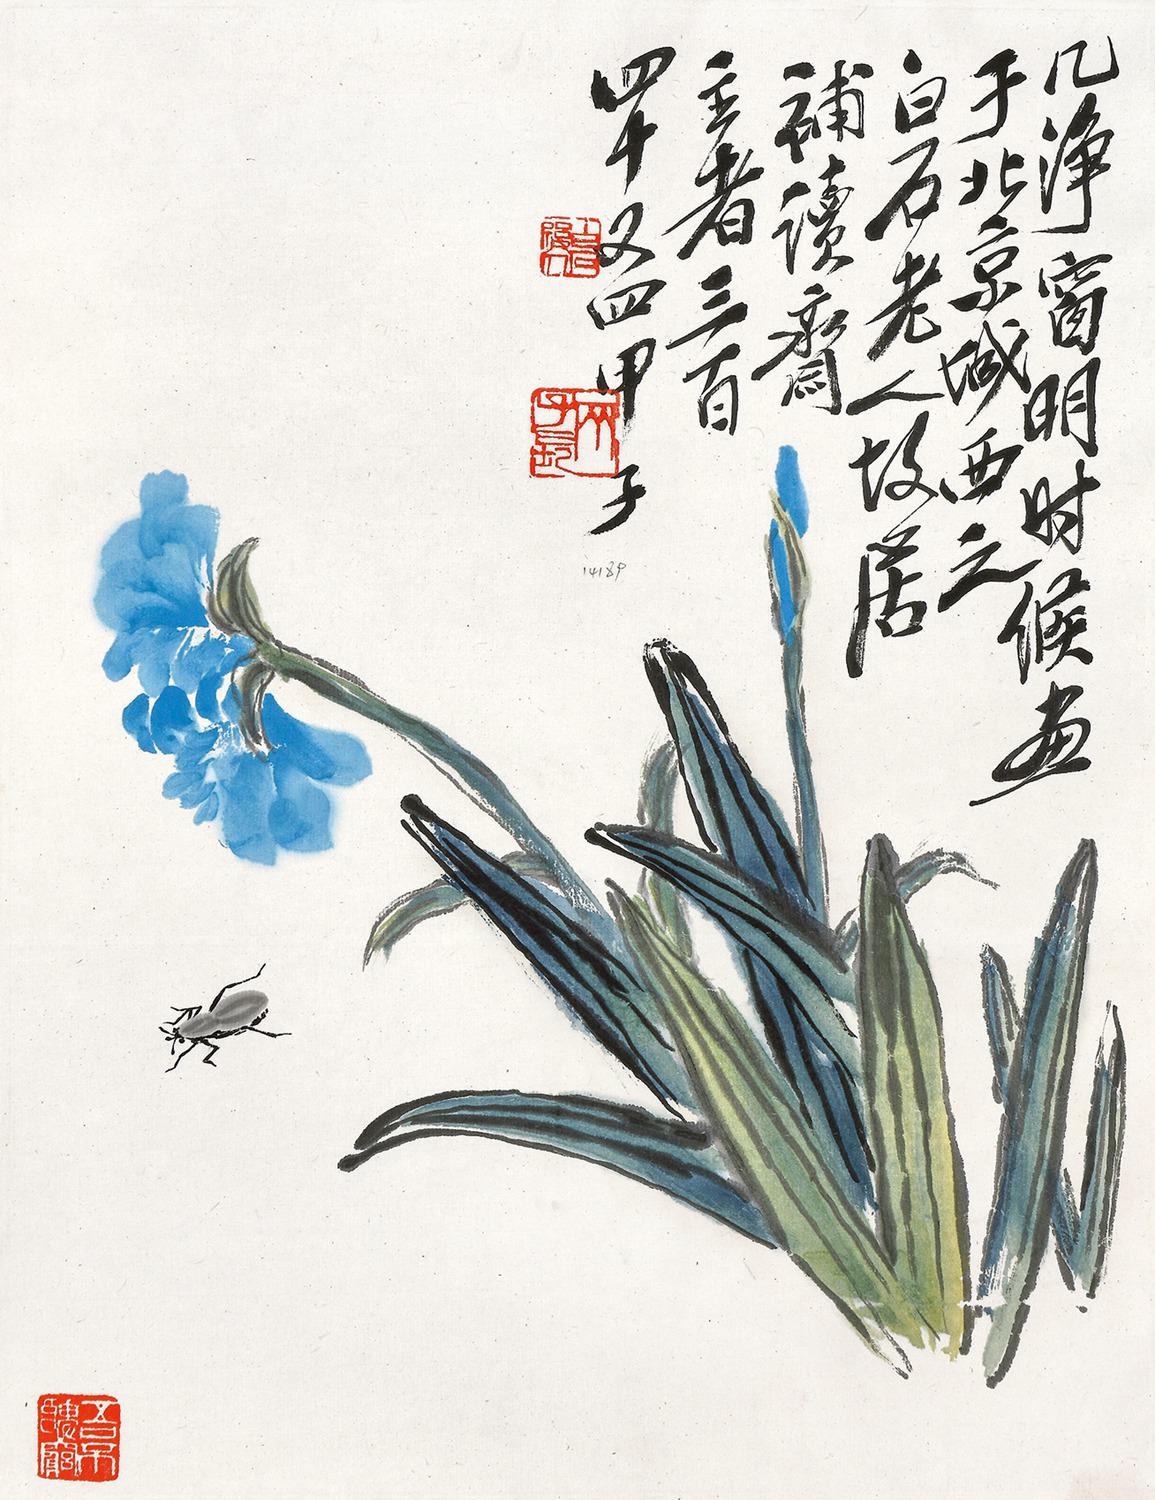 几淨窗明时候画
于北京城西之
白石老人故居
補讀齋
主者三百
四十又四甲子
14189